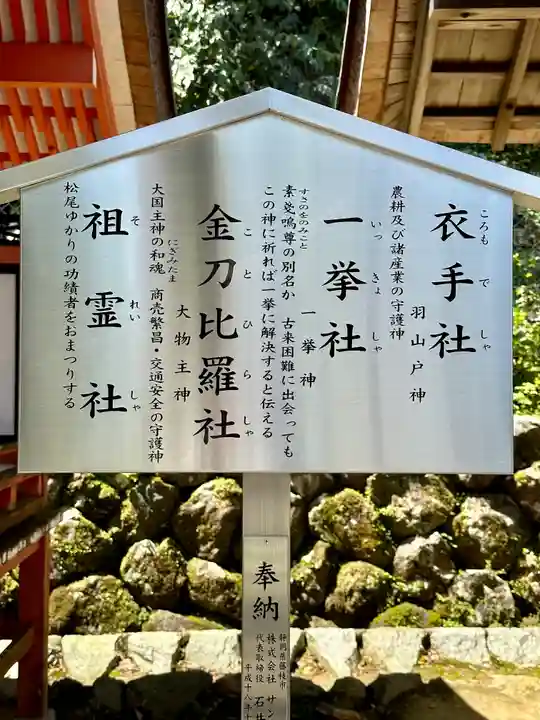 衣手社
ころもでしゃ
羽山戸神
農耕及び諸産業の守護神
一挙社
いっきょしゃ
一挙神
素戔嗚尊の別名か 古来困難に出会っても
すさのをのみこと
この神に祈れば一挙に解決すると伝える
金刀比羅社
ことひらしゃ
大物主神
大国主神の和魂 商売繁昌・交通安全の守護神
にぎみたま
祖霊社
それいしゃ
松尾ゆかりの功績者をおまつりする
奉納
静岡県藤枝市
株式会社 サン
代表取締役 石
平成十八年十